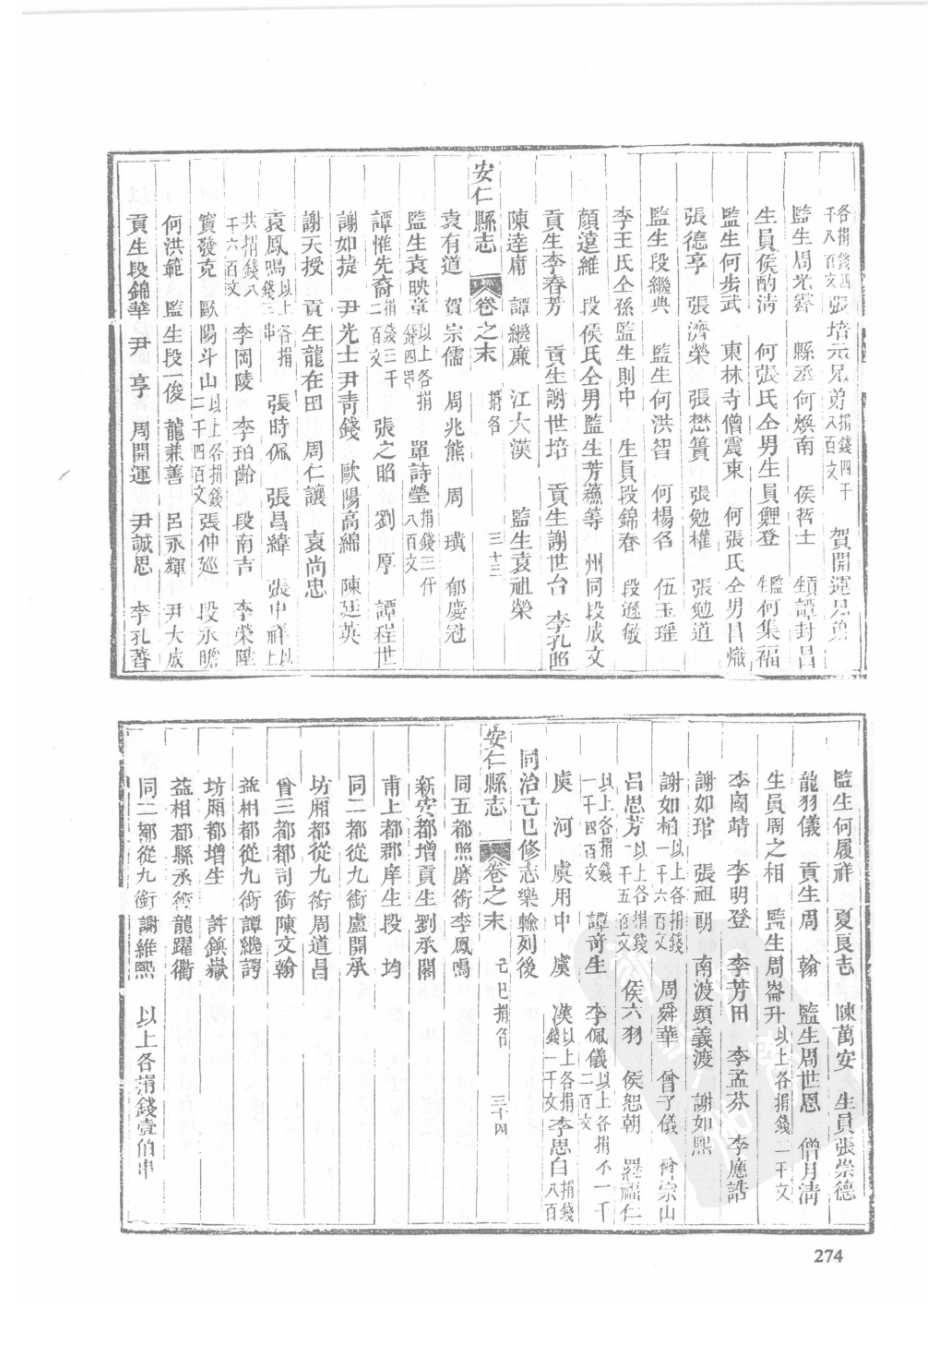 各捐錢四千八百文 張培元兄弟捐錢四千八百文 賀開運兄弟
監生周光 縣丞何煥南 侯哲士 生員譚封昌
生員侯酌清 何張氏仝男生員鯉登 監生何集福
監生何步武 東林寺僧震東 何張氏仝男昌熾
張德享 張濟榮 張懋簣 張勉權 張勉道
監生段繼典 監生何洪智 何楊名 伍玉瑶
李王氏仝孫監生則中 生員段錦春 段遜敏
顏遠維 段侯氏仝男監生芳蘊等 州同段成文
貢生李春芳 貢生謝世培 貢生謝世台 李孔照
陳逵庸 譚繼廉 江大漢 監生袁祖榮
安仁縣志 卷之末 捐名 三十三
袁有道 賀宗儒 周兆熊 周璜 郁慶冠
監生袁映章以上各捐錢四串 單詩瑩捐錢三仟八百文
譚惟先裔捐錢三千二百文 張之昭 劉厚 譚程世
謝如提 尹光士尹靑錢 歐陽高綿 陳廷英
謝天授 貢生龍在田 周仁讓 袁尚忠
袁鳳鳴以上各捐錢三串 張時佩 張昌緯 張中祥以上
共捐錢八千六百文 李岡陵 李珀齡 段南吉 李榮陞
竇發克 歐陽斗山以上各捐錢二千四百文 張仲廵 段永瞻
何洪範 監生段一俊 龍兼善 呂永輝 尹大成
貢生段錦華 尹享 周開運 尹誠思 李孔蓍
監生何履祥 夏良志 陳萬安 生員張崇德
龍羽儀 貢生周翰 監生周世恩 僧月清
生員周之相 監生周崙升以上各捐錢二千文
李閣靖 李明登 李芳田 李孟芬 李應誥
謝如琯 張祖朗 南渡頭義渡 謝如熙
謝如柏以上各捐錢一千六百文 周舜華 曾子儀 宗山
呂思芳以上各捐錢一千五百文 侯六羽 侯恕朝 羅福仁
以上各捐錢一千四百文 譚許生 李佩儀以上各捐一千二百文
虞河 虞用中 虞漢以上各捐錢一千文 李思白捐錢八百
同治己巳修志樂輸列後
安仁縣志 卷之末 己巳捐名 三十四
同五都照磨銜李鳳鳴
新安都增貢生劉承閣
甫上都郡庠生段均
同二都從九銜盧開承
坊廂都從九銜周道昌
曾三都都司銜陳文翰
益相都從九銜譚繼諤
坊廂都增生 許鐭嶽
益相都縣丞銜龍躍衢
同二都從九銜謝維熙 以上各捐錢壹伯串
274